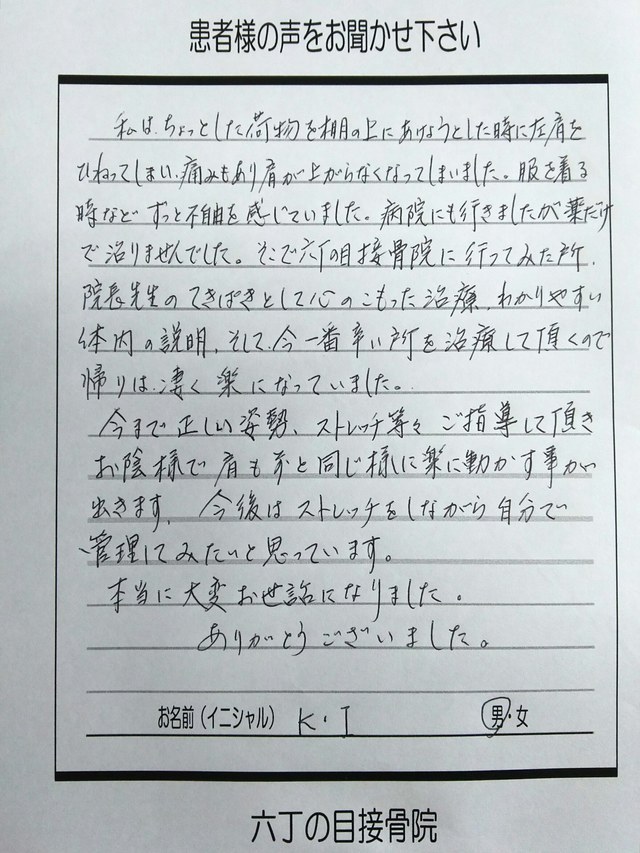 患者様の声をお聞かせ下さい
私は、ちょっとした荷物を棚の上にあげようとした時に左肩を
ひねってしまい、痛みもあり肩が上がらなくなってしまいました。服を着る
時など ずっと不自由を感じていました。病院にも行きましたが薬だけ
で治りませんでした。そこで六丁の目接骨院に行ってみた所、
院長先生のてきぱきとして心のこもった治療、わかりやすい
体内の説明、そして、今一番辛い所を治療して頂くので
帰りは、凄く楽になっていました。
今まで正しい姿勢、ストレッチ等々ご指導して頂き
お陰様で肩も元と同じ様に楽に動かす事が
出きます。今後はストレッチをしながら自分で
管理してみたいと思っています。
本当に大変お世話になりました。
ありがとうございました。
お名前（イニシャル） K・I 男・女
六丁の目接骨院